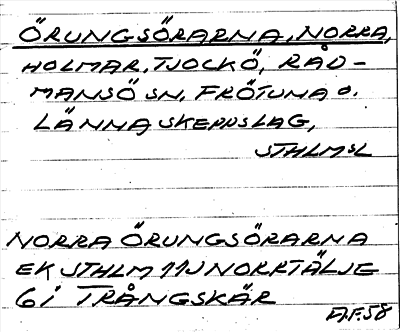 ÖRUNGSÖRARNA, NORRA,
HOLMAR, TJOCKÖ, RÅD-
MANSÖ SN, FRÖTUNA O.
LÄNNA SKEPPSLAG,
STHLMSL
NORRA ÖRUNGSÖRARNA
EK STHLM 11J NORRTÄLJE
6 i TRÅNGSKÄR
A.F. 58